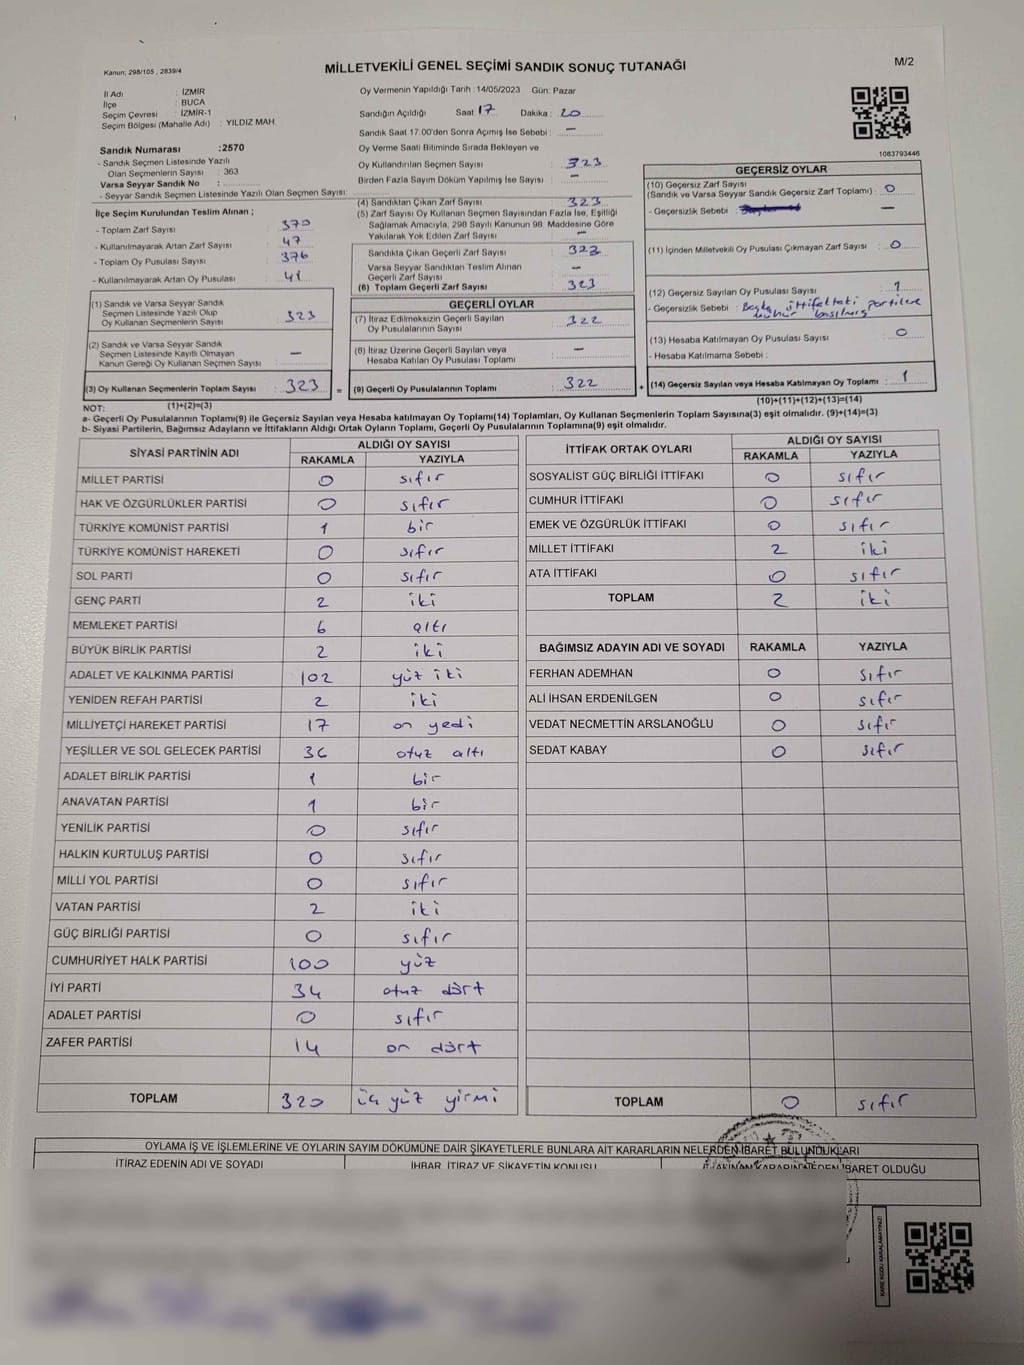 Kanun; 298/105 , 2839/4
MİLLETVEKİLİ GENEL SEÇİMİ SANDIK SONUÇ TUTANAĞI
M/2
İl Adı : İZMİR
İlçe : BUCA
Seçim Çevresi : İZMİR-1
Seçim Bölgesi (Mahalle Adı) : YILDIZ MAH.
Sandık Numarası :2570
- Sandık Seçmen Listesinde Yazılı
Olan Seçmenlerin Sayısı : 363
Varsa Seyyar Sandık No :
- Seyyar Sandık Seçmen Listesinde Yazılı Olan Seçmen Sayısı:
Oy Vermenin Yapıldığı Tarih : 14/05/2023 Gün: Pazar
Sandığın Açıldığı Saat: 17 Dakika : 20
Sandık Saat 17:00'den Sonra Açımış İse Sebebi : —
Oy Verme Saati Bitiminde Sırada Bekleyen ve
Oy Kullandırılan Seçmen Sayısı : 323
Birden Fazla Sayım Döküm Yapılmış İse Sayısı : —
1083793446
İlçe Seçim Kurulundan Teslim Alınan ;
- Toplam Zarf Sayısı : 370
- Kullanılmayarak Artan Zarf Sayısı : 47
- Toplam Oy Pusulası : 376
- Kullanılmayarak Artan Oy Pusulası : 41
(1) Sandık ve Varsa Seyyar Sandık
Seçmen Listesinde Yazılı Olup
Oy Kullanan Seçmenlerin Sayısı : 323
(2) Sandık ve Varsa Seyyar Sandık
Seçmen Listesinde Kayıtlı Olmayan
Kanun Gereği Oy Kullanan Seçmen Sayısı : —
(3) Oy Kullanan Seçmenlerin Toplam Sayısı : 323 =
(1)+(2)=(3)
(4) Sandıktan Çıkan Zarf Sayısı : 323
(5) Zarf Sayısı Oy Kullanan Seçmen Sayısından Fazla İse, Eşitliği
Sağlamak Amacıyla, 298 Sayılı Kanunun 98. Maddesine Göre
Yakılarak Yok Edilen Zarf Sayısı : —
Sandıkta Çıkan Geçerli Zarf Sayısı : 323
Varsa Seyyar Sandıktan Teslim Alınan
Geçerli Zarf Sayısı : —
(6) Toplam Geçerli Zarf Sayısı : 323
GEÇERLİ OYLAR
(7) İtiraz Edilmeksizin Geçerli Sayılan
Oy Pusulalarının Sayısı : 322
(8) İtiraz Üzerine Geçerli Sayılan veya
Hesaba Katılan Oy Pusulası Toplamı : —
(9) Geçerli Oy Pusulalarının Toplamı : 322 +
GEÇERSİZ OYLAR
(10) Geçersiz Zarf Sayısı
(Sandık ve Varsa Seyyar Sandık Geçersiz Zarf Toplamı) : 0
- Geçersizlik Sebebi : —
(11) İçinden Milletvekili Oy Pusulası Çıkmayan Zarf Sayısı : 0
(12) Geçersiz Sayılan Oy Pusulası Sayısı : 1
- Geçersizlik Sebebi : Başka ittifaktaki partilere
mühür basılmış
(13) Hesaba Katılmayan Oy Pusulası Sayısı : 0
- Hesaba Katılmama Sebebi :
(14) Geçersiz Sayılan veya Hesaba Katılmayan Oy Toplamı : 1
(10)+(11)+(12)+(13)=(14)
NOT:
a- Geçerli Oy Pusulalarının Toplamı(9) ile Geçersiz Sayılan veya Hesaba katılmayan Oy Toplamı(14) Toplamları, Oy Kullanan Seçmenlerin Toplam Sayısına(3) eşit olmalıdır. (9)+(14)=(3)
b- Siyasi Partilerin, Bağımsız Adayların ve İttifakların Aldığı Ortak Oyların Toplamı, Geçerli Oy Pusulalarının Toplamına(9) eşit olmalıdır.
SİYASİ PARTİNİN ADI ALDIĞI OY SAYISI
RAKAMLA YAZIYLA
MİLLET PARTİSİ 0 sıfır
HAK VE ÖZGÜRLÜKLER PARTİSİ 0 sıfır
TÜRKİYE KOMÜNİST PARTİSİ 1 bir
TÜRKİYE KOMÜNİST HAREKETİ 0 sıfır
SOL PARTİ 0 sıfır
GENÇ PARTİ 2 iki
MEMLEKET PARTİSİ 6 altı
BÜYÜK BİRLİK PARTİSİ 2 iki
ADALET VE KALKINMA PARTİSİ 102 yüz iki
YENİDEN REFAH PARTİSİ 2 iki
MİLLİYETÇİ HAREKET PARTİSİ 17 on yedi
YEŞİLLER VE SOL GELECEK PARTİSİ 36 otuz altı
ADALET BİRLİK PARTİSİ 1 bir
ANAVATAN PARTİSİ 1 bir
YENİLİK PARTİSİ 0 sıfır
HALKIN KURTULUŞ PARTİSİ 0 sıfır
MİLLİ YOL PARTİSİ 0 sıfır
VATAN PARTİSİ 2 iki
GÜÇ BİRLİĞİ PARTİSİ 0 sıfır
CUMHURİYET HALK PARTİSİ 100 yüz
İYİ PARTİ 34 otuz dört
ADALET PARTİSİ 0 sıfır
ZAFER PARTİSİ 14 on dört
TOPLAM 320 üç yüz yirmi
İTTİFAK ORTAK OYLARI ALDIĞI OY SAYISI
RAKAMLA YAZIYLA
SOSYALİST GÜÇ BİRLİĞİ İTTİFAKI 0 sıfır
CUMHUR İTTİFAKI 0 sıfır
EMEK VE ÖZGÜRLÜK İTTİFAKI 0 sıfır
MİLLET İTTİFAKI 2 iki
ATA İTTİFAKI 0 sıfır
TOPLAM 2 iki
BAĞIMSIZ ADAYIN ADI VE SOYADI RAKAMLA YAZIYLA
FERHAN ADEMHAN 0 sıfır
ALİ İHSAN ERDENİLGEN 0 sıfır
VEDAT NECMETTİN ARSLANOĞLU 0 sıfır
SEDAT KABAY 0 sıfır
TOPLAM 0 sıfır
OYLAMA İŞ VE İŞLEMLERİNE VE OYLARIN SAYIM DÖKÜMÜNE DAİR ŞİKAYETLERLE BUNLARA AİT KARARLARIN NELERDEN İBARET BULUNDUKLARI
İTİRAZ EDENİN ADI VE SOYADI İHBAR, İTİRAZ VE ŞİKAYETİN KONUSU İBARET OLDUĞU
KARE KODU KARALAMAYINIZ!